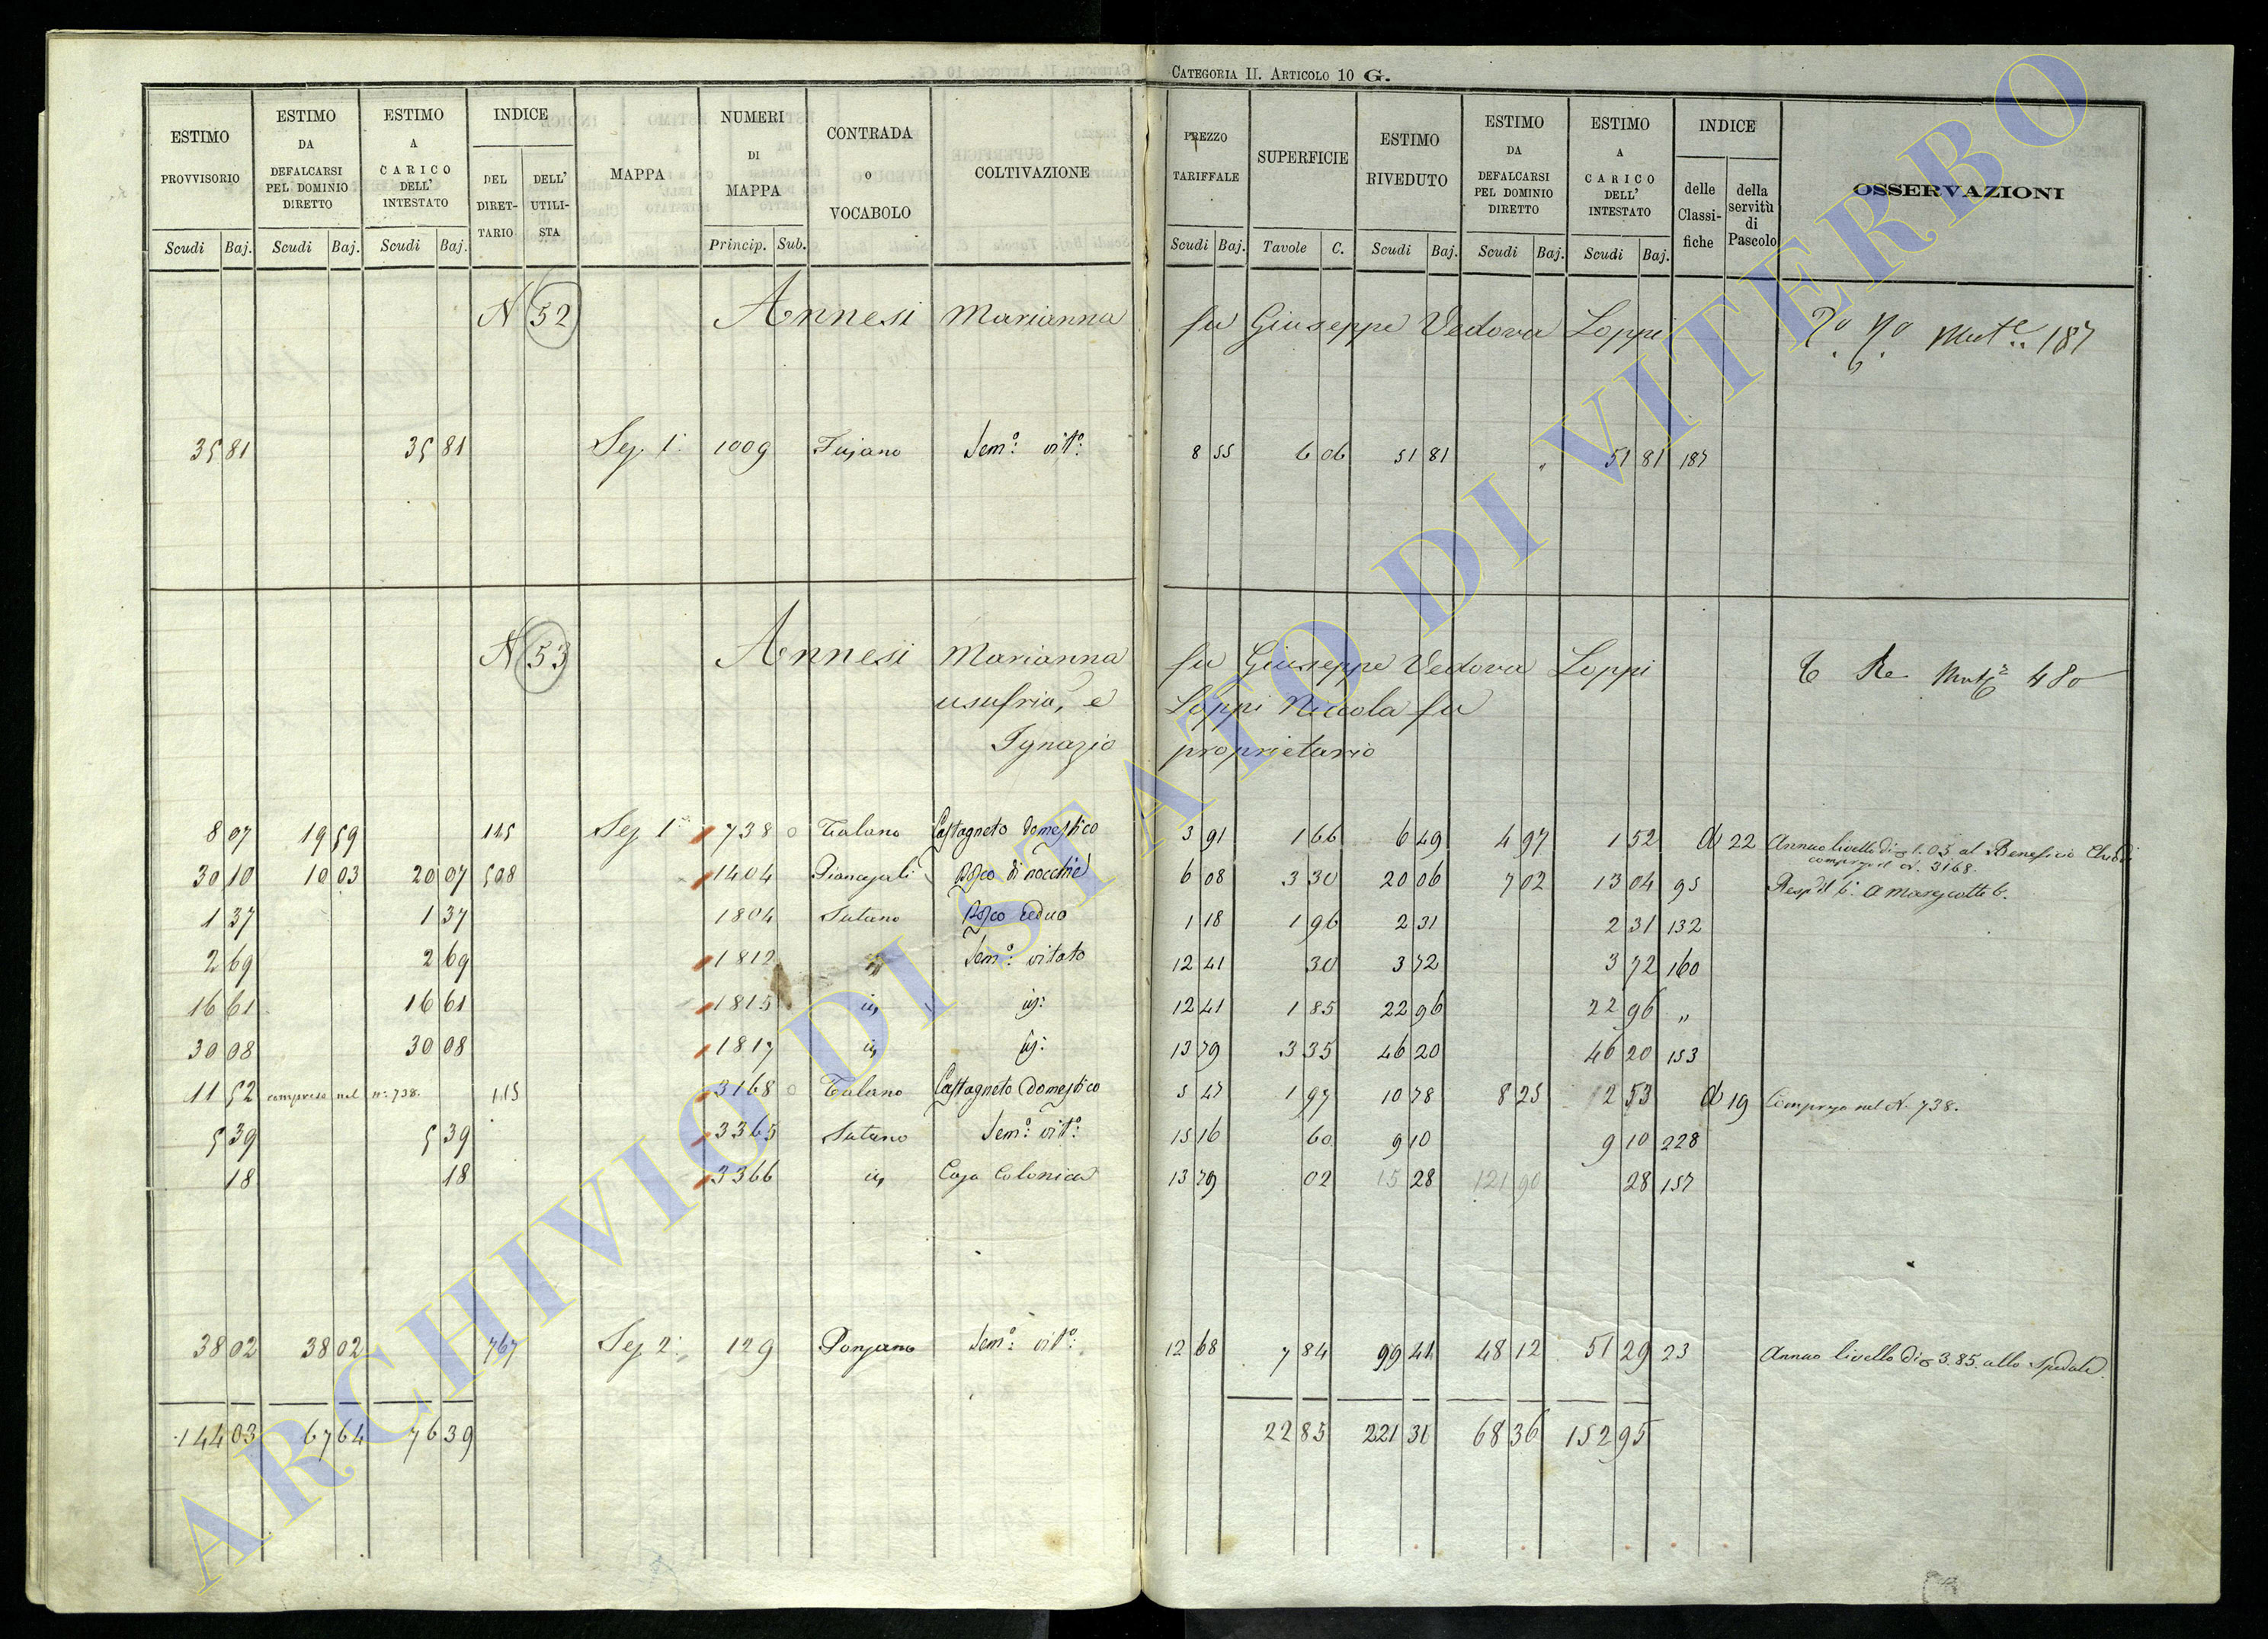 CATEGORIA II. ARTICOLO 10 G.
ESTIMO PROVVISORIO Scudi Baj. ESTIMO DA DEFALCARSI PEL DOMINIO DIRETTO Scudi Baj. ESTIMO A CARICO DELL' INTESTATO Scudi Baj. INDICE DEL DIRET-TARIO DELL' UTILI-STA MAPPA NUMERI DI MAPPA Princip. Sub. CONTRADA o VOCABOLO COLTIVAZIONE PREZZO TARIFFALE Scudi Baj. SUPERFICIE Tavole C. ESTIMO RIVEDUTO Scudi Baj. ESTIMO DA DEFALCARSI PEL DOMINIO DIRETTO Scudi Baj. ESTIMO A CARICO DELL' INTESTATO Scudi Baj. INDICE delle Classi-fiche della servitù di Pascolo OSSERVAZIONI
N 52 Annesi Marianna fu Giuseppe Vedova Loppi 187
35 81 35 81 Sez. 1: 1009 Sem.o vit.o 8 55 6 06 51 81 " 51 81 187
N 53 Annesi Marianna fu Giuseppe Vedova Loppi 480
usufria, e Loppi Niccola fu
Ignazio proprietario
8 07 19 59 115 Sez 1 738 o Talano Castagneto domestico 3 91 1 66 6 49 4 97 1 52 22 Annuo livello di 1.05 al Beneficio
compreso il N. 3168.
30 10 10 03 20 07 508 1404 Bosco di nocchie 6 08 3 30 20 06 7 02 13 04 95
1 37 1 37 1804 Sutano Bosco ceduo 1 18 1 96 2 31 2 31 132
2 69 2 69 1812 Sem.o vitato 12 41 30 3 72 3 72 160
16 61 16 61 1815 12 41 1 85 22 96 22 96 "
30 08 30 08 1817 13 79 3 35 46 20 46 20 153
11 52 compreso nel n.o 738. 115 3168 o Talano Castagneto domestico 5 47 1 97 10 78 8 25 2 53 19 Compreso nel N. 738.
5 39 5 39 3365 Sutano Sem.o vit.o 15 16 60 9 10 9 10 228
18 18 3366 Casa Colonica 13 79 02 15 28 121 90 28 157
38 02 38 02 767 Sez 2: 129 Ponzano Sem.o vit.o 12 68 7 84 99 41 48 12 51 29 23 Annuo livello di 3.85. allo Spedale.
144 03 67 64 76 39 22 85 221 31 68 36 152 95
ARCHIVIO DI STATO DI VITERBO